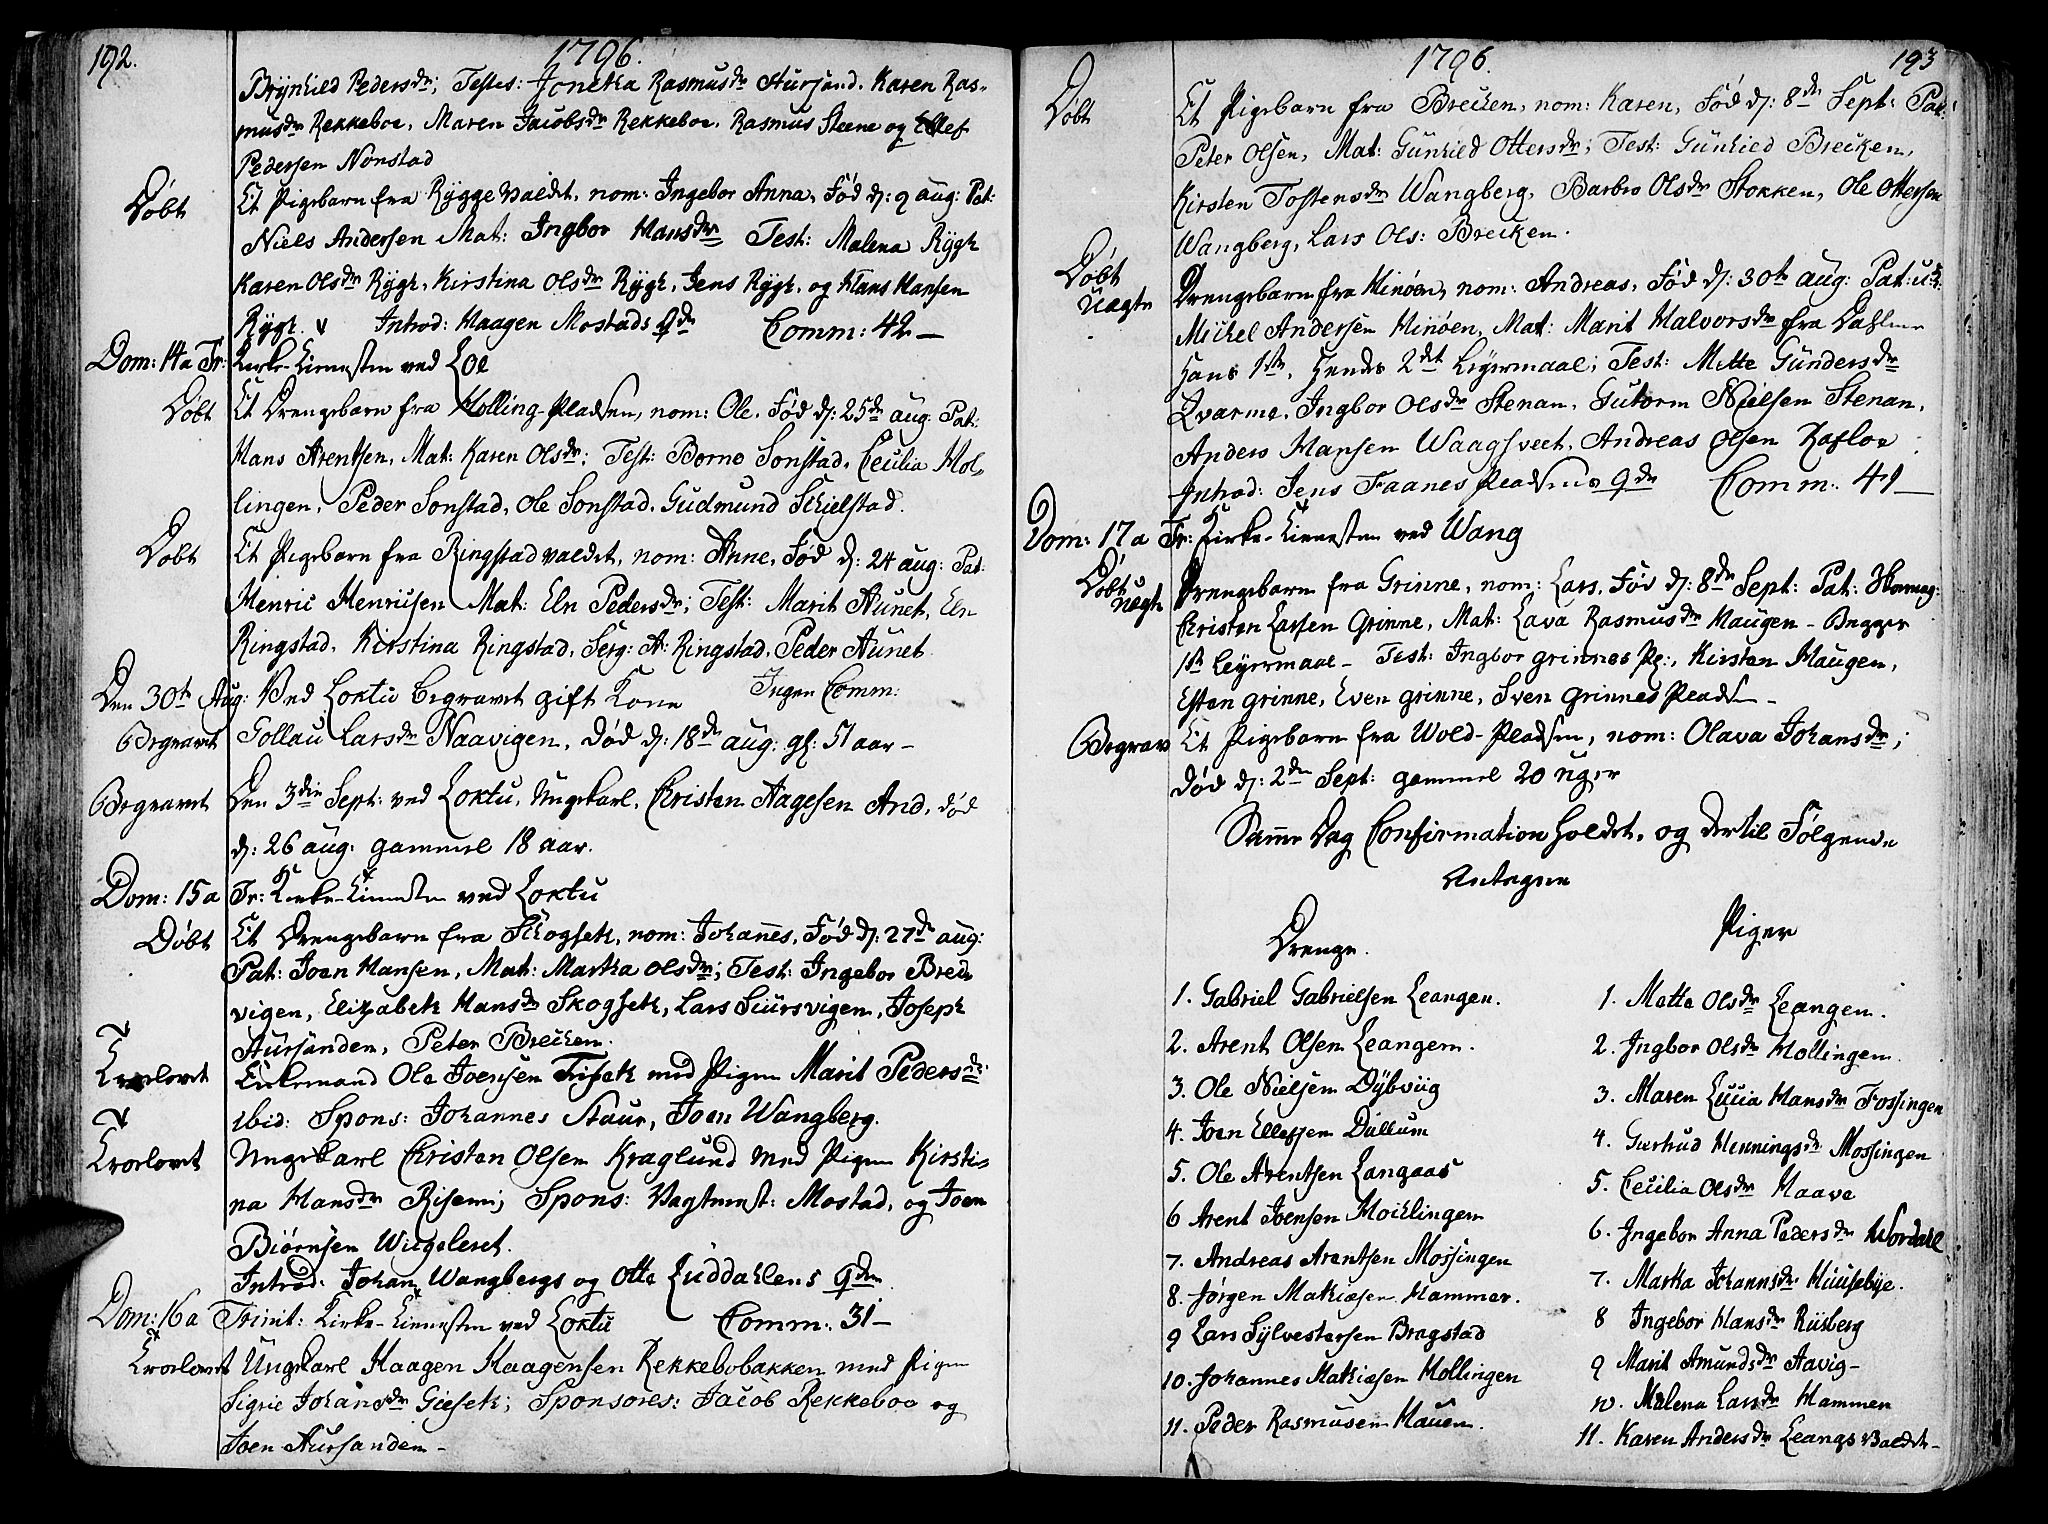 192.
1796.
Brynhild Pedersdr; Testes: Joneka Rasmusdr Aursand, Karen Ras-
musdr Rekkeboe, Maren Jacobsdr Rekkeboe, Rasmus Steene og Ellef
Pedersen Nonstad
Døbt Et Pigebarn fra Rygge valdet, nom: Ingebor Anna, Fød d: 9 aug: Pat:
Niels Andersen Mat: Ingbor Hansdr Test: Malena Rygh
Karen Olsdr Rygh, Kirstina Olsdr Rygh, Jens Rygh, og Hans Hansen
Rygh. Introd: Haagen Mostads qde Comm: 42 -
Dom: 14 a Tr: Kirke-Tienesten ved Loe
Døbt Et Drengebarn fra Holling-Pladsen, nom: Ole, Fød d: 25de aug: Pat:
Hans Arentsen, Mat: Karen Olsdr; Test: Borne Sonstad, Cecilia Hol-
lingen, Peder Sonstad, Ole Sonstad, Gudmund Skielstad.
Døbt Et Pigebarn fra Ringstad valdet, nom: Anne, Fød d: 24 aug: Pat:
Henric Henricsen Mat: Eln Pedersdr; Test: Marit Aunet, Eln
Ringstad, Kirstina Ringstad, Serg: A: Ringstad, Peder Aunet
Den 30te Aug: Ved Loktu begravet gift Kone Ingen Comm:
Begravet Gollau Larsdr Naavigen, død d: 18de aug: gl: 51 aar -
Begravet Den 3die Sept: ved Loktu, Ungekarl, Christen Aagesen And, død
d: 26 aug: gammel 18 aar.
Dom: 15 a Tr: Kirke-Tienesten ved Loktu
Døbt Et Drengebarn fra Skogsek, nom: Johannes, Fød d: 27de aug:
Pat: Joen Hansen, Mat: Martha Olsdr; Test: Ingebor Bred-
vigen, Elizabeth Hansdr Skogseth, Lars Siursvigen, Joseph
Aursanden, Peter Brechen.
Trolovet Enkemand Ole Joensen Fiseth med Pigen Marit Pedersdr
ibid: Spons: Johannes Staur, Joen Wangberg.
Trolovet Ungekarl Christen Olsen Kraglund med Pigen Kirsti-
na Hansdr Risem; Spons: Vagtmest: Mostad, og Joen
Biørnsen Wigeleret.
Introd: Johan Wangbergs og Otte Luddahlens qder
Dom: 16 a Trinit: Kirke-Tienesten ved Loktu Comm: 31 -
Trolovet Ungekarl Haagen Haagensen Rekkebobakken med Pigen
Sigrie Johansdr Gieseth; Sponsores: Jacob Rekkeboe og
Joen Aursanden -
1796.
193
Døbt Et Pigebarn fra Brecken, nom: Karen, Fød d: 8de Sept: Pat:
Peter Olsen, Mat: Gunhild Ottersdr; Test: Gunhild Brecken,
Kirsten Tostensdr Wangberg, Barbro Olsdr Stokken, Ole Ottersen
Wangberg, Lars Ols: Brecken.
Døbt
Uægte Drengebarn fra Hinøen, nom: Andreas, Fød d: 30te aug: Pat:
Michel Andersen Hinøen, Mat: Marit Halvorsdr fra
Hans 1ste, Hendes 2det Leyermaal; Test: Mette Gundersdr
Qvarme, Ingbor Olsdr Stenan, Gutorm Nielsen Stenan,
Anders Hansen Waagsveet, Andreas Olsen Kafloe
Introd: Jens Faanes Pladsens qde Comm: 41 -
Dom: 17 a Tr: Kirke-Tienesten ved Wang
Døbt
uægte Drengebarn fra Grinne, nom: Lars, Fød d: 8de Sept: Pat:
Christen Larsen Grinne, Mat: Lava Rasmusdr Haugen - Begges
1ste Leyermaal - Test: Ingbor grinnes Pl:, Kirsten Haugen,
Esten grinne, Even grinne, Sven grinnes Pladsen -
Begrav Et Pigebarn fra Wold-Pladsen, nom: Olava Johansdr;
død d: 2den Sept: gammel 20 uger
Samme Dag Confirmation holdet, og dertil Følgende
Antagne
Drenge.
1. Gabriel Gabrielsen Leangen.
2. Arent Olsen Leangen.
3. Ole Nielsen Dybviig
4. Joen Ellefsen Dullum
5. Ole Arentsen Langaas
6 Arent Joensen Moichlingen
7. Andreas Arentsen Mossingen
8. Jørgen Mathiesen Hammer.
9 Lars Sylvestersen Bragstad
10. Johannes Mathiesen Hollingen
11. Peder Rasmusen Hauen.
Piger
1. Mette Olsdr Leangen.
2. Ingbor Olsdr Hollingen
3. Maren Lucia Hansdr Fossingen
4. Giertrud Henningsdr Mossingen
5. Cecilia Olsdr Haave
6. Ingebor Anna Pedersdr Wordahl
7. Martha Johannsdr Huusebye.
8 Ingebor Hansdr Rusberg
9 Marit Amundsdr Aavig -
10. Malena Larsdr Hammer
11. Karen Andersdr Leangs Valdet -